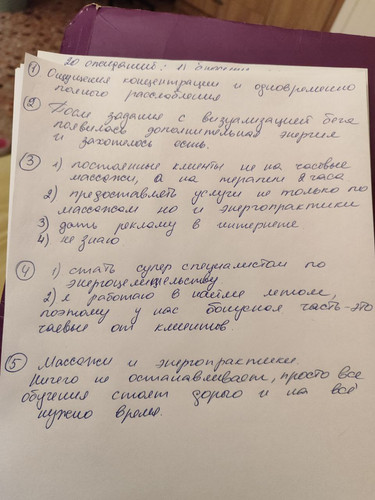 20 ожиданий: я
① Ощущения концентрации и одновременно
полного расслобления
② После задание с визуализацией бега
появилась дополнительная энергия
и захотелось есть.
③ 1) постоянные клиенты не на часовые
массажи, а на терапии 2 часа
2) предоставлять услуги не только по
массажом но и энергопрактики
3) дать рекламу в интернете
4) не знаю
④ 1) стать супер специалистом по
энергоцелительству
2) я работаю в найме летом,
поэтому у нас бонусная часть - это
чаевые от клиентов.
⑤ Массажи и энергопрактики.
Ничего не останавливает, просто все
обучения стоят дорого и на всё
нужно время.